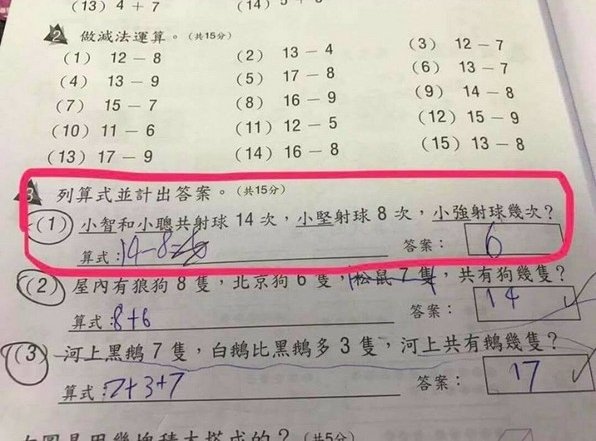 (13) 4 + 7 (14)
2 做減法運算。(共15分)
(1) 12 － 8 (2) 13 － 4 (3) 12 － 7
(4) 13 － 9 (5) 17 － 8 (6) 13 － 7
(7) 15 － 7 (8) 16 － 9 (9) 14 － 8
(10) 11 － 6 (11) 12 － 5 (12) 15 － 9
(13) 17 － 9 (14) 16 － 8 (15) 13 － 8
3 列算式並計出答案。(共15分)
(1) 小智和小聰共射球 14 次，小堅射球 8 次，小強射球幾次？
算式：14－8=6 答案： 6
(2) 屋內有狼狗 8 隻，北京狗 6 隻，松鼠 7 隻，共有狗幾隻？
算式：8+6 答案： 14
(3) 河上黑鵝 7 隻，白鵝比黑鵝多 3 隻，河上共有鵝幾隻？
算式：7+3+7 答案： 17
圖是用幾塊積木搭成的？(共5分)